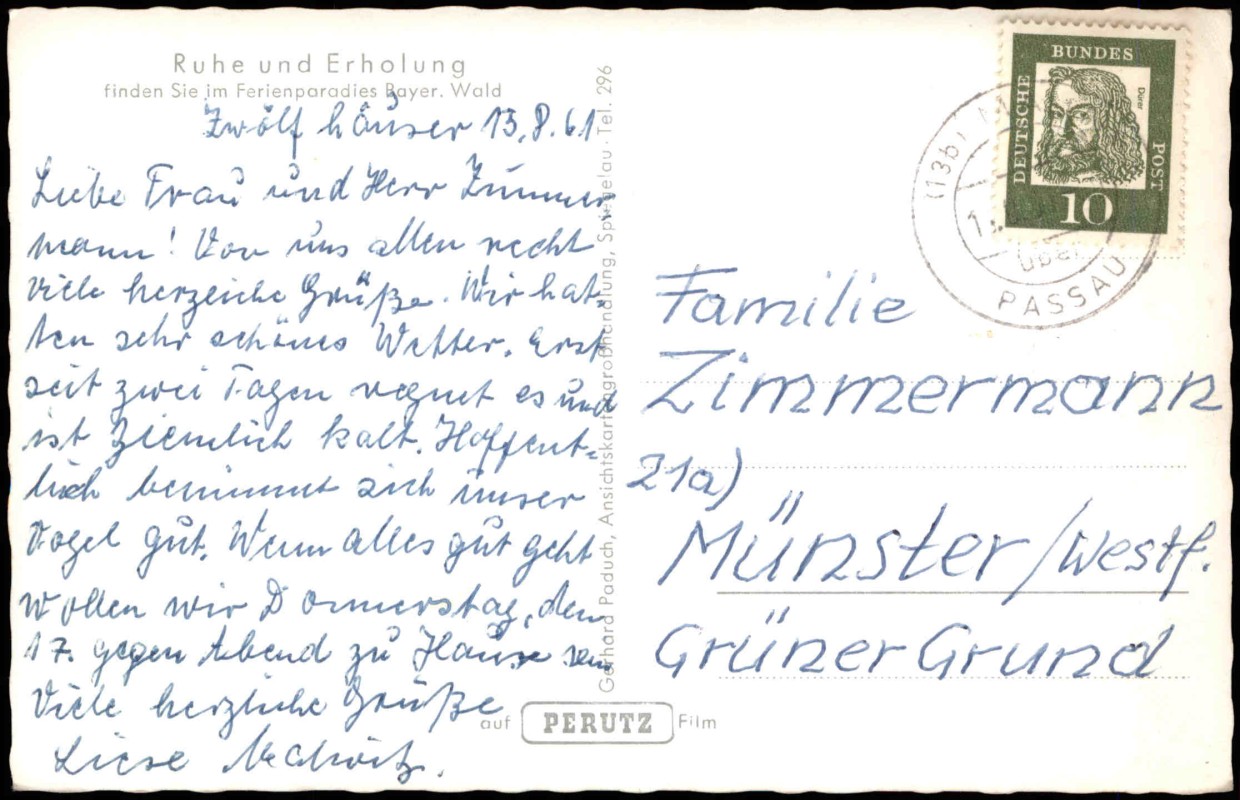 Ruhe und Erholung
finden Sie im Ferienparadies Bayer. Wald
Zwölfhäuser 13.8.61
Liebe Frau und Herr Zimmer
mann! Von uns allen recht
viele herzliche Grüße. Wir hat-
ten sehr schönes Wetter. Erst
seit zwei Tagen regnet es und
ist ziemlich kalt. Hoffent-
lich benimmt sich unser
Vogel gut. Wenn alles gut geht
wollen wir Donnerstag, den
17. gegen Abend zu Hause sein
Viele herzliche Grüße
Liese
Gerhard Paduch, Ansichtskartengroßhandlung, Spiegelau · Tel. 296
auf PERUTZ Film
DEUTSCHE
BUNDES
POST
Dürer
10
(13b)
über
PASSAU
Familie
Zimmermann
21a)
Münster/Westf.
Grüner Grund